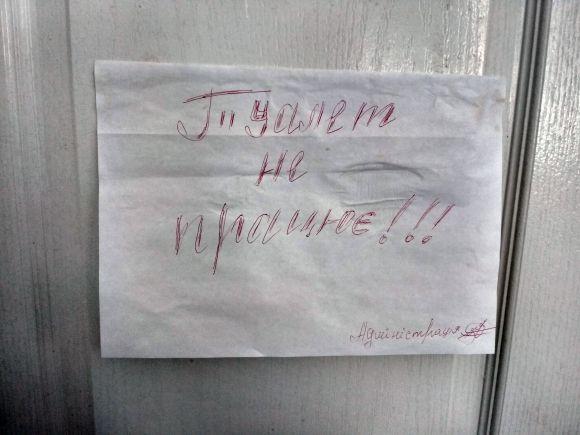 Туалет
не
працює!!!
Адміністрація